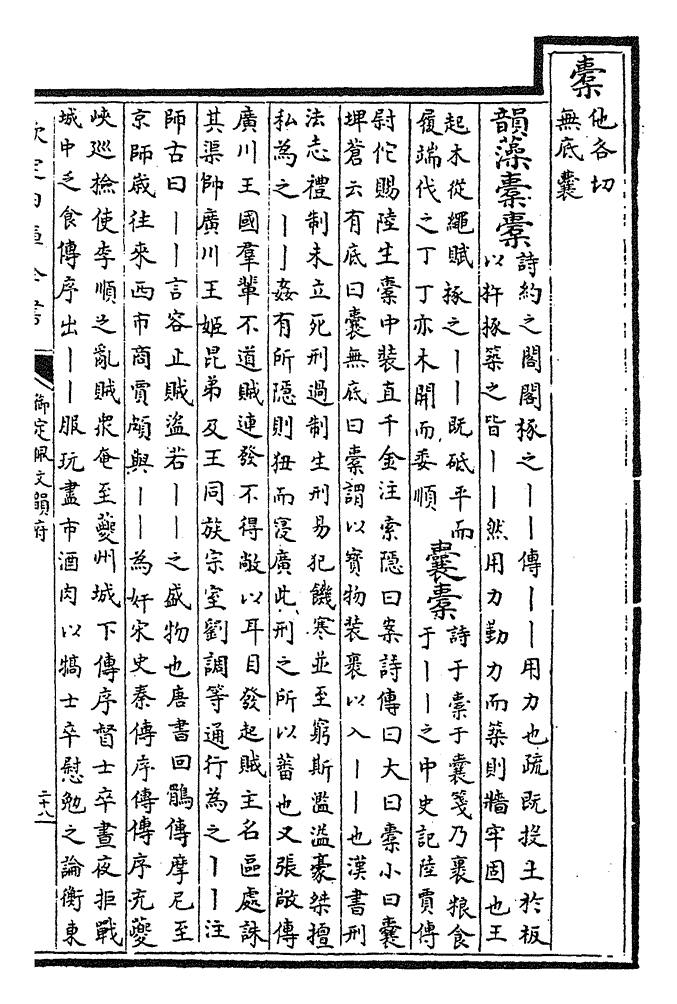 橐
他各切
無底囊
韻藻橐橐
詩約之閣閣椓之丨丨傳丨丨用力也疏既投土於板
以杵椓築之皆丨丨然用力勤力而築則牆牢固也王
起木從繩賦椓之丨丨既砥平而
履端代之丁丁亦木開而委順
囊橐
詩于橐于囊箋乃裹粮食
于丨丨之中史記陸賈傳
尉佗賜陸生橐中裝直千金注索隱曰案詩傳曰大曰橐小曰囊
埤蒼云有底曰囊無底曰橐謂以寶物裝裹以入丨丨也漢書刑
法志禮制未立死刑過制生刑易犯饑寒並至窮斯濫溢豪桀擅
私為之丨丨姦有所隱則狃而寖廣此刑之所以蕃也又張敞傳
廣川王國羣輩不道賊連發不得敞以耳目發起賊主名區處誅
其渠帥廣川王姬昆弟及王同族宗室劉調等通行為之丨丨注
師古曰丨丨言容止賊盜若丨丨之盛物也唐書回鶻傳摩尼至
京師歲往來西市商賈頗與丨丨為奸宋史秦傳序傳傳序充夔
峽巡檢使李順之亂賊衆奄至夔州城下傳序督士卒晝夜拒戰
城中乏食傳序出丨丨服玩盡市酒肉以犒士卒慰勉之論衡東
欽定四庫全書
御定佩文韻府
二十八